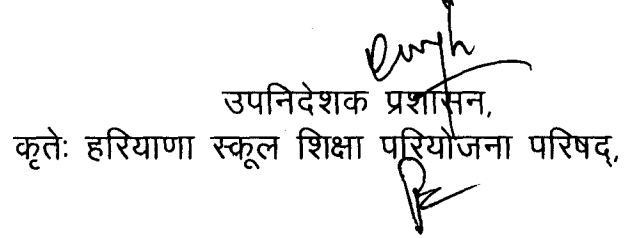 उपनिदेशक प्रशासन,
कृतेः हरियाणा स्कूल शिक्षा परियोजना परिषद्,